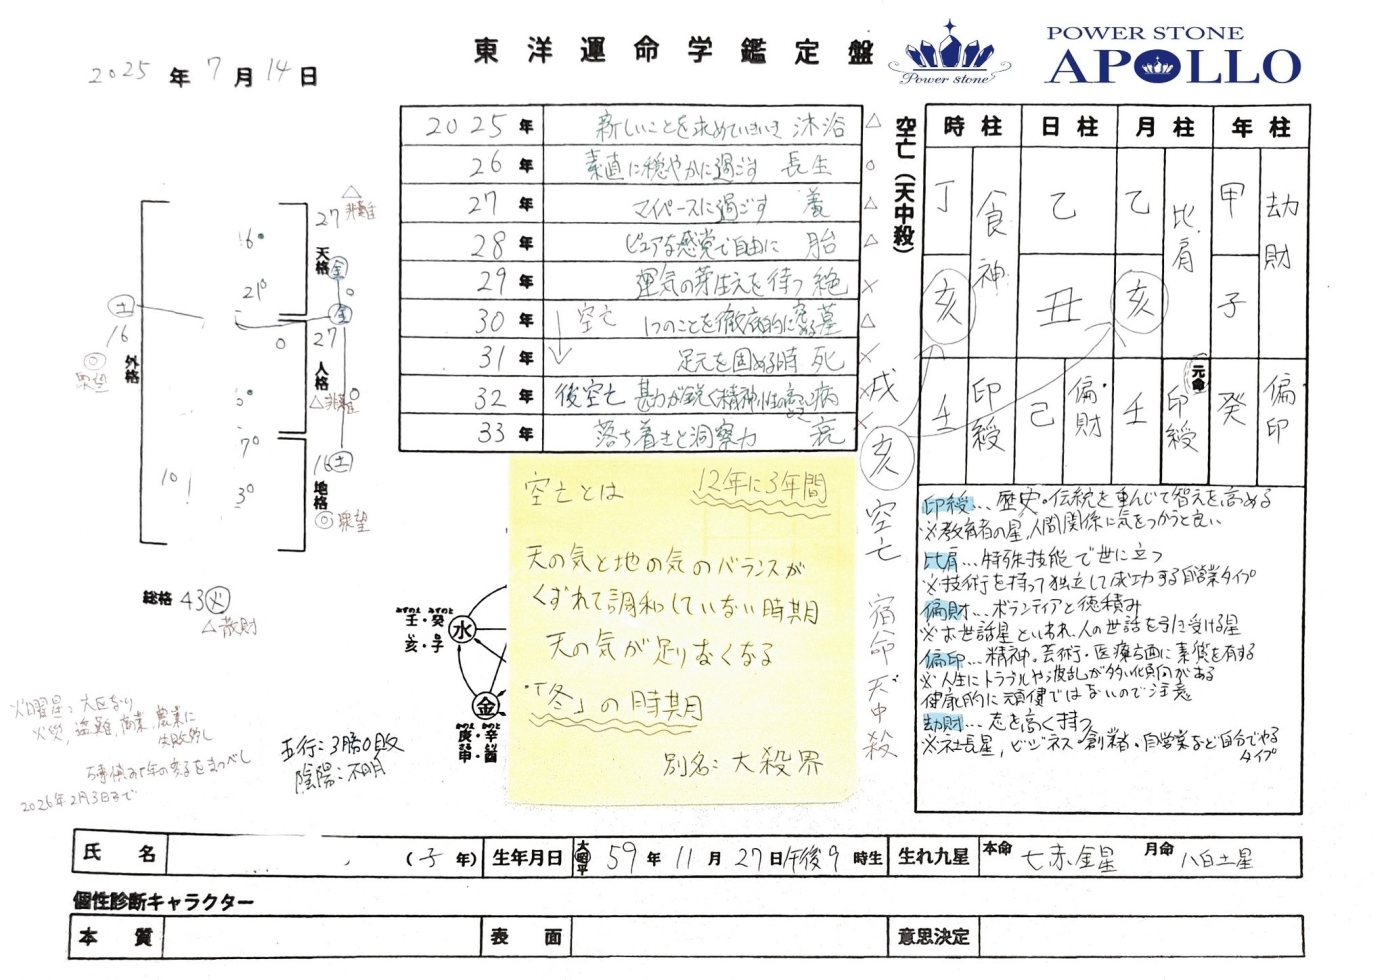 東洋運命学鑑定盤
Power stone
POWER STONE
APOLLO
2025年7月14日
2025年 新しいことを求めていきいき 沐浴 △
26年 素直に穏やかに過ごす 長生 ○
27年 マイペースに過ごす 養 △
28年 ピュアな感覚で自由に 胎 △
29年 運気の芽生えを待つ 絶 ×
30年 空亡 1つのことを徹底的に 墓 △
31年 足元を固める時 死 ×
32年 後空亡 勘が鋭く精神性の高い 病 ×
33年 落ち着きと洞察力 衰 ×
空亡(天中殺)
戌
亥
空亡
宿命天中殺
時柱 日柱 月柱 年柱
丁 食神 乙 乙 比肩 甲 劫財
亥 丑 亥 子
元命
壬 印綬 己 偏財 壬 印綬 癸 偏印
印綬…歴史・伝統を重んじて智えを高める
※教育者の星、人間関係に気をつかうと良い
比肩…特殊技能で世に立つ
※技術を持って独立して成功する自営業タイプ
偏財…ボランティアと徳積み
※お世話星といわれ、人の世話を引き受ける星
偏印…精神・芸術・医療方面に素質を有する
※人生にトラブルや波乱が多い傾向がある
健康的に頑健ではないので注意
劫財…志を高く持つ
※社長星、ビジネス・創業者・自営業など自分でやる
タイプ
△
27 非難
16
天格
金
21
土
金
16
27
◎
衆望
外格
人格
△非難
6
7
16土
10
3
地格
◎衆望
総格 43火
△散財
空亡とは 12年に3年間
天の気と地の気のバランスが
くずれて調和していない時期
天の気が足りなくなる
「冬」の時期
別名:大殺界
みずのえ みずのと
壬・癸
亥・子
水
金
かのえ かのと
庚・辛
申・酉
火災、盗難、商業、農業に
失敗多し
2026年2月3日まで
五行:3勝0敗
陰陽:不明
氏名 (子年) 生年月日 大昭平 59年11月27日午後9時生 生れ九星 本命 七赤金星 月命 八白土星
個性診断キャラクター
本質 表面 意思決定